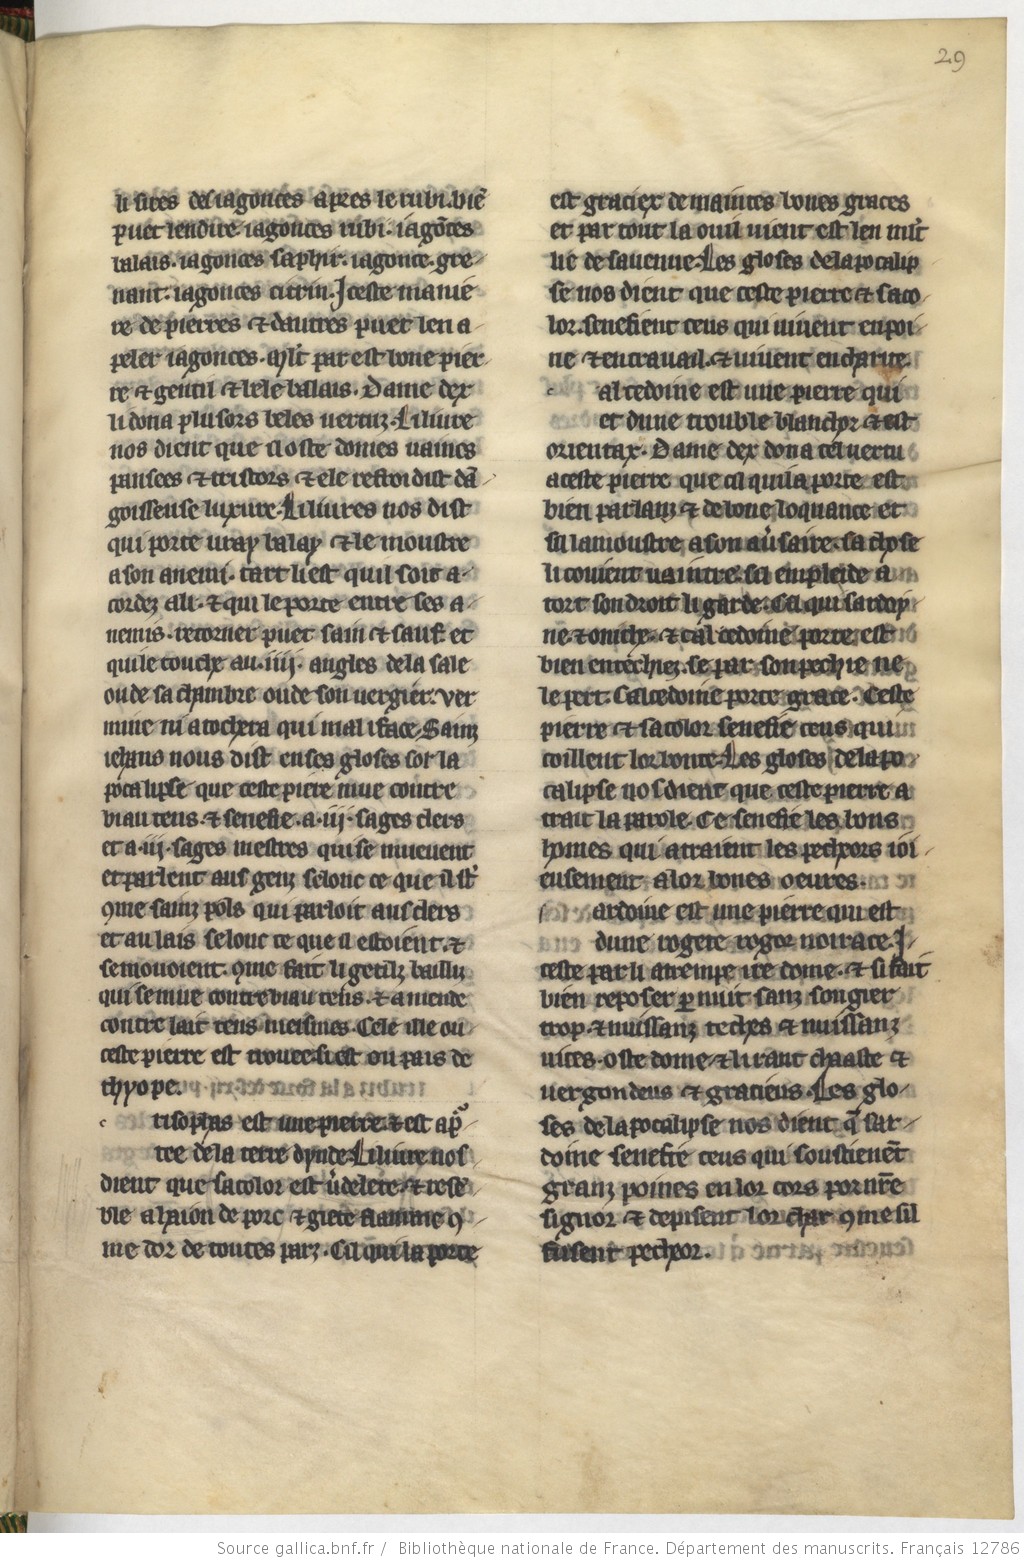 29
li sires des iagonces apres le rubi. biē
puet len dire iagonces rubi. iagōces
balais. iagonces saphir. iagonce. gre-
nant. iagonces citrin. Iceste manie
re de pierres ⁊ dautres puet len a-
peler iagonces. mlt' par est bone pier-
re ⁊ gentil ⁊ bele balais. Dame dex
li dona plusors beles vertuz. Li livre
nos dient que il oste domes vaines
pansees ⁊ tristors ⁊ ele refroidist dā-
goisseuse luxure. Li livres nos dist
qui porte vray balay ⁊ le moustre
a son anemi. tart li est quil soit a-
cordez a li. ⁊ qui le porte entre ses a-
nemis. retorner puet sain ⁊ sauf. et
qui le touche au .iiij. angles de la sale
ou de sa chambre ou de son vergier. ver
mine ni atochera qui mal i face. Sainz
iehans nous dist en ses gloses sor la
pocalipse que ceste piere mue contre
biau tens. ⁊ senefie .a .iij. sages clers
et a .iij. sages mestres qui se muevent
et parlent aus genz selonc ce que il st'
9me sainz pols qui parloit aus clers
et au lais selonc ce que il estoient. ⁊
se movoient. 9me fait li getilz
qui se mue contre biau tens. ⁊ amende
contre lait tens meismes. Cele ille ou
ceste pierre est trovee si est ou pais de
thyope.
risophas est une pierre. ⁊ est ap
tee de la terre dynde. Li livre nos
dient que sa color est ⁊ resē-
ble a lxion de porc ⁊ giete flamme 9-
me dor de toutes parz. Cil qui la porte
est graciex de maintes bones graces
et par tout la ou il vient est len
lie de sa venue. Les gloses de lapocalip
se nos dient que ceste pierre ⁊ sa co-
lor. senefient ceus qui vivent en poi-
ne ⁊ en travail. ⁊ vivent en charite.
alcedoine est une pierre qui
et dune trouble blanchor ⁊ est
orientax. Dame dex dona tel vertu
a ceste pierre que cil qui la porte est
bien parlanz ⁊ de bone loquance et
sil la moustre a son av'saire. sa chose
li covient vaintre. sil empleide a
tort son droit li garde. Cil qui sardoy
ne. ⁊ oniche. ⁊ calcedoine porte est
bien entechiez. se par son pechie ne
le pert. Calcedoine porte grace. Ceste
pierre ⁊ sa color senefie ceus qui
coillent lor bonte. Les gloses de lapo
calipse nos dient que ceste pierre a
trait la parole. Ce senefie les bons
homes qui atraient les pecheors ioi-
eusement a lor bones oeures.
ardoine est une pierre qui est
dune rogete rogor noirace. I-
ceste par li atrempe ire dome. ⁊ si fait
bien reposer p nuit sanz songier
trop. ⁊ nuissanz teches ⁊ nuissanz
vices. oste dome. ⁊ li rant chaaste ⁊
vergondeus ⁊ gracieus. Les glo-
ses de lapocalipse nos dient q̄ sar-
doine senefie ceus qui soustienēt
granz poines en lor cors por nr̄e
signor ⁊ depisent lor char 9me sil
fussent pecheor.
Source gallica.bnf.fr / Bibliothèque nationale de France. Département des manuscrits. Français 12786